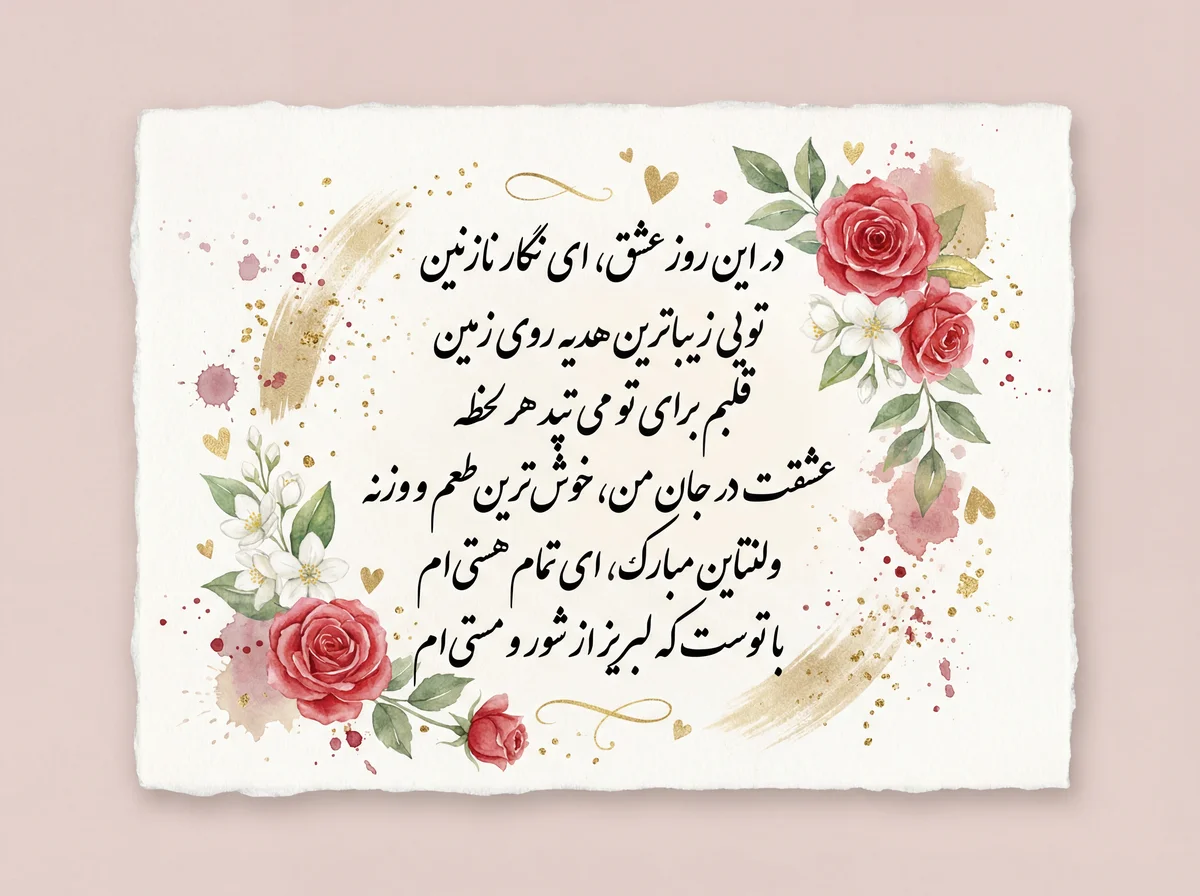 در این روز عشق، ای نگار نازنین
تویی زیباترین هدیه روی زمین
قلبم برای تو می تپد هر لحظه
عشقت در جان من، خوش ترین طعم و وزنه
ولنتاین مبارک، ای تمام هستی ام
با توست که لبریز از شور و مستی ام